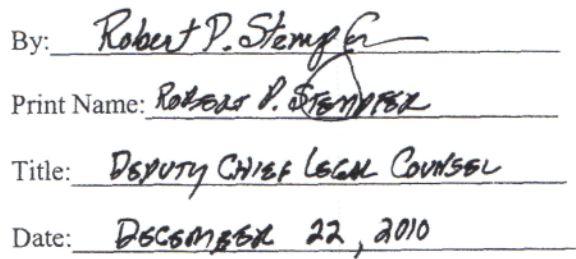 By: Robert P. Stempfer
Print Name: ROBERT P. STEMPFER
Title: DEPUTY CHIEF LEGAL COUNSEL
Date: DECEMBER 22, 2010